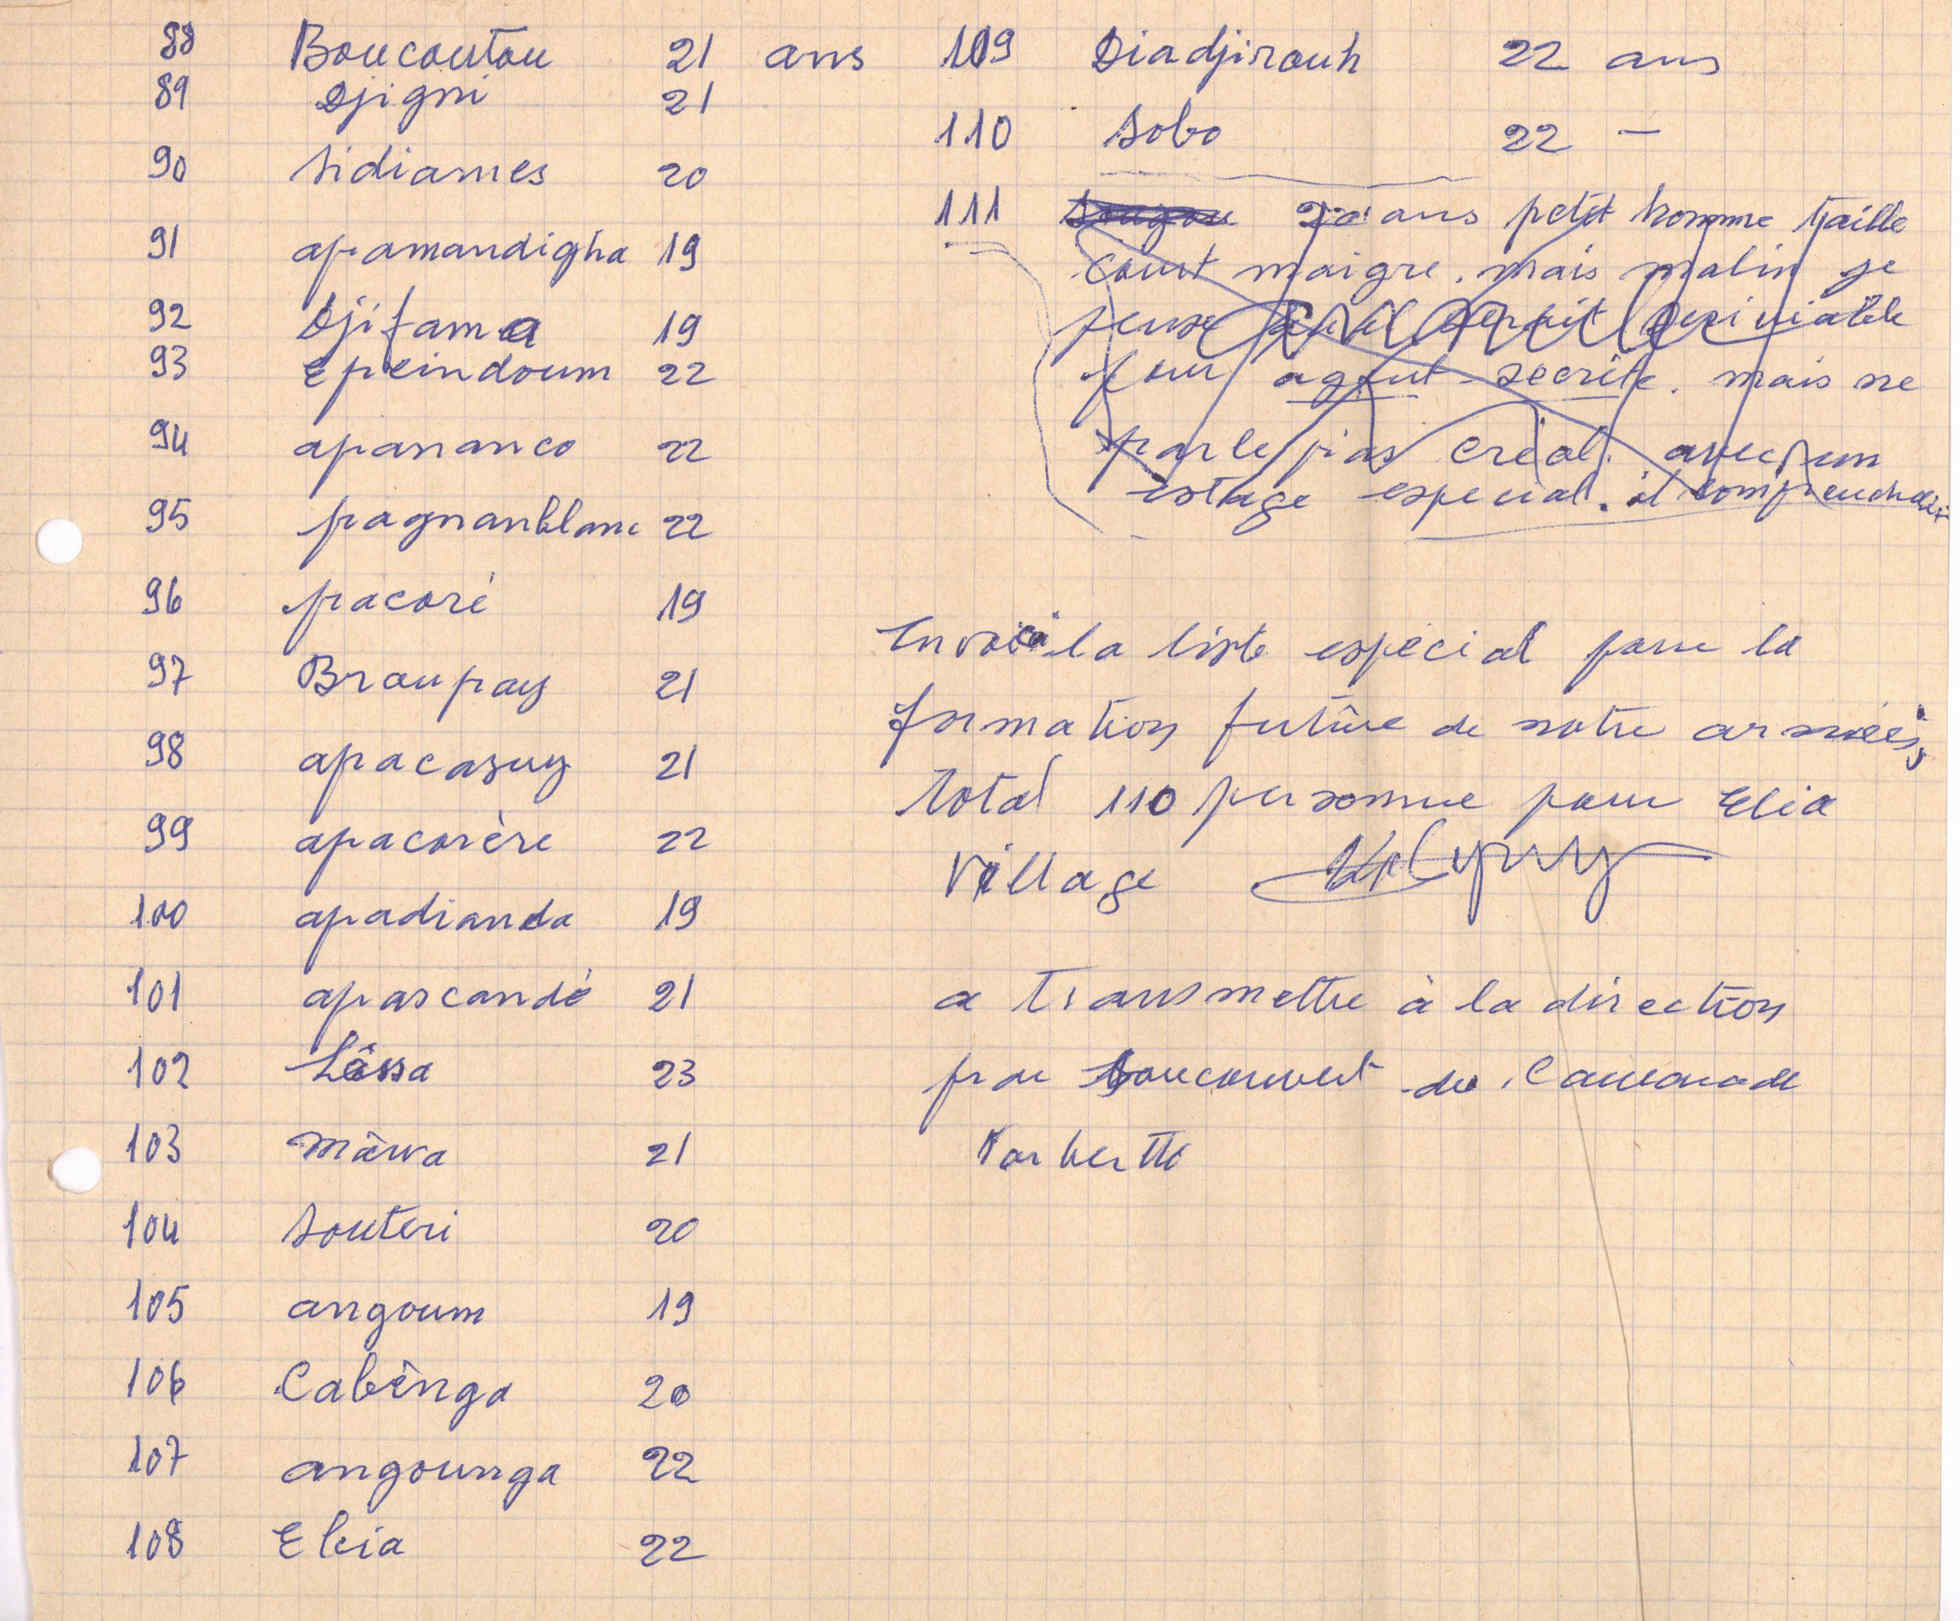 88 Boucoutou 21 ans
89 Djigni 21
90 Sidiames 20
91 apamandigha 19
92 Djifama 19
93 Epeindoum 22
94 apananco 22
95 pagnanblanc 22
96 pacoré 19
97 Braupay 21
98 apacasuy 21
99 apacorère 22
100 apadianda 19
101 apascandé 21
102 Lâssa 23
103 Mârva 21
104 Souteri 20
105 angoum 19
106 Cabênga 20
107 angounga 22
108 Eleia 22
109 Diadjirouh 22 ans
110 Sobo 22 –
111 ans petit homme taille
court maigre. mais malin je
pense serait
pour agent secrète. mais ne
parle pas créol. avec un
estage especial. il comprendrait
Envoici la liste espécial pour la
formation futûre de notre armées,
Total 110 personne pour Elia
Village
a Transmettre à la direction
par Soucouvert du Camarade
Norbertto